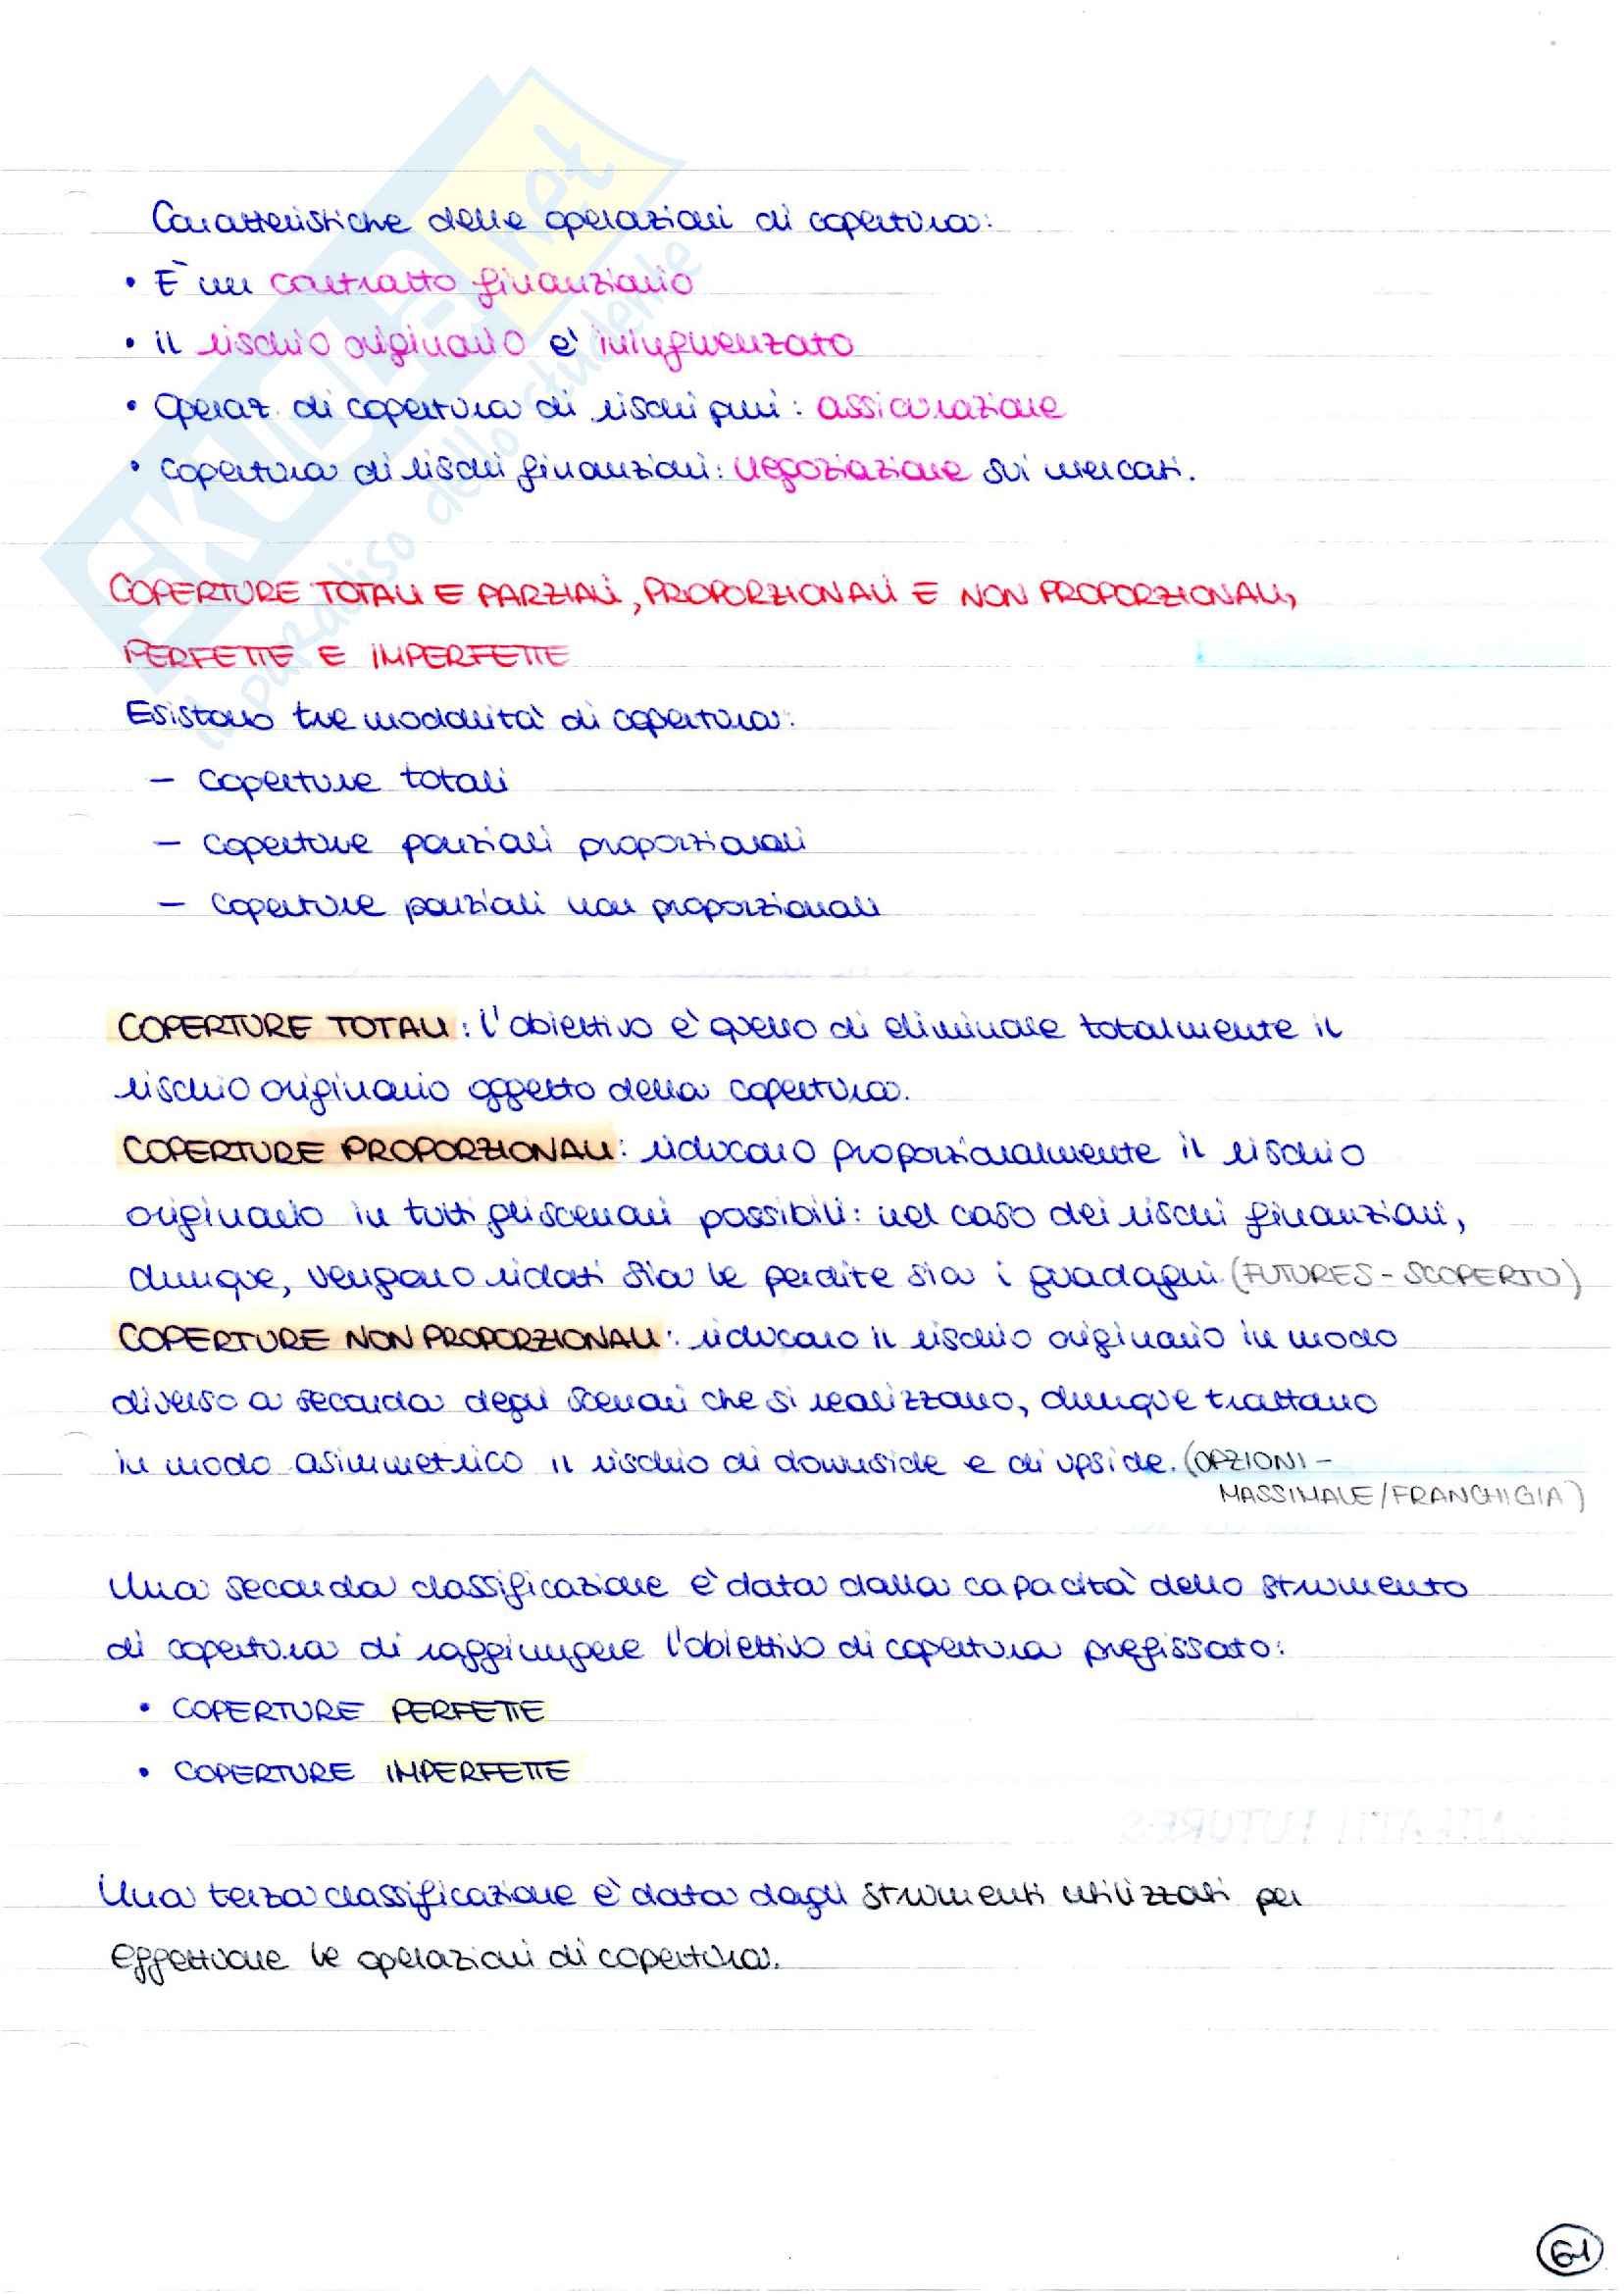 SKUOLA.net
il paradiso dello studente
Caratteristiche delle operazioni di copertura:
• È un contratto finanziario
• il rischio originario e' ininfluenzato
• Operaz. di copertura di rischi puri: assicurazione
• copertura di rischi finanziari: negoziazione sui mercati.
COPERTURE TOTALI E PARZIALI, PROPORZIONALI E NON PROPORZIONALI,
PERFETTE E IMPERFETTE
Esistono tre modalità di copertura:
– coperture totali
– coperture parziali proporzionali
– coperture parziali non proporzionali
COPERTURE TOTALI: l'obiettivo è quello di eliminare totalmente il
rischio originario oggetto della copertura.
COPERTURE PROPORZIONALI: riducono proporzionalmente il rischio
originario in tutti gli scenari possibili: nel caso dei rischi finanziari,
dunque, vengono ridotti sia le perdite sia i guadagni (FUTURES - SCOPERTO)
COPERTURE NON PROPORZIONALI: riducono il rischio originario in modo
diverso a seconda degli scenari che si realizzano, dunque trattano
in modo asimmetrico il rischio di downside e di upside. (OPZIONI -
MASSIMALE/FRANCHIGIA)
Una seconda classificazione è data dalla capacità dello strumento
di copertura di raggiungere l'obiettivo di copertura prefissato:
• COPERTURE PERFETTE
• COPERTURE IMPERFETTE
Una terza classificazione è data dagli strumenti utilizzati per
effettuare le operazioni di copertura.
61